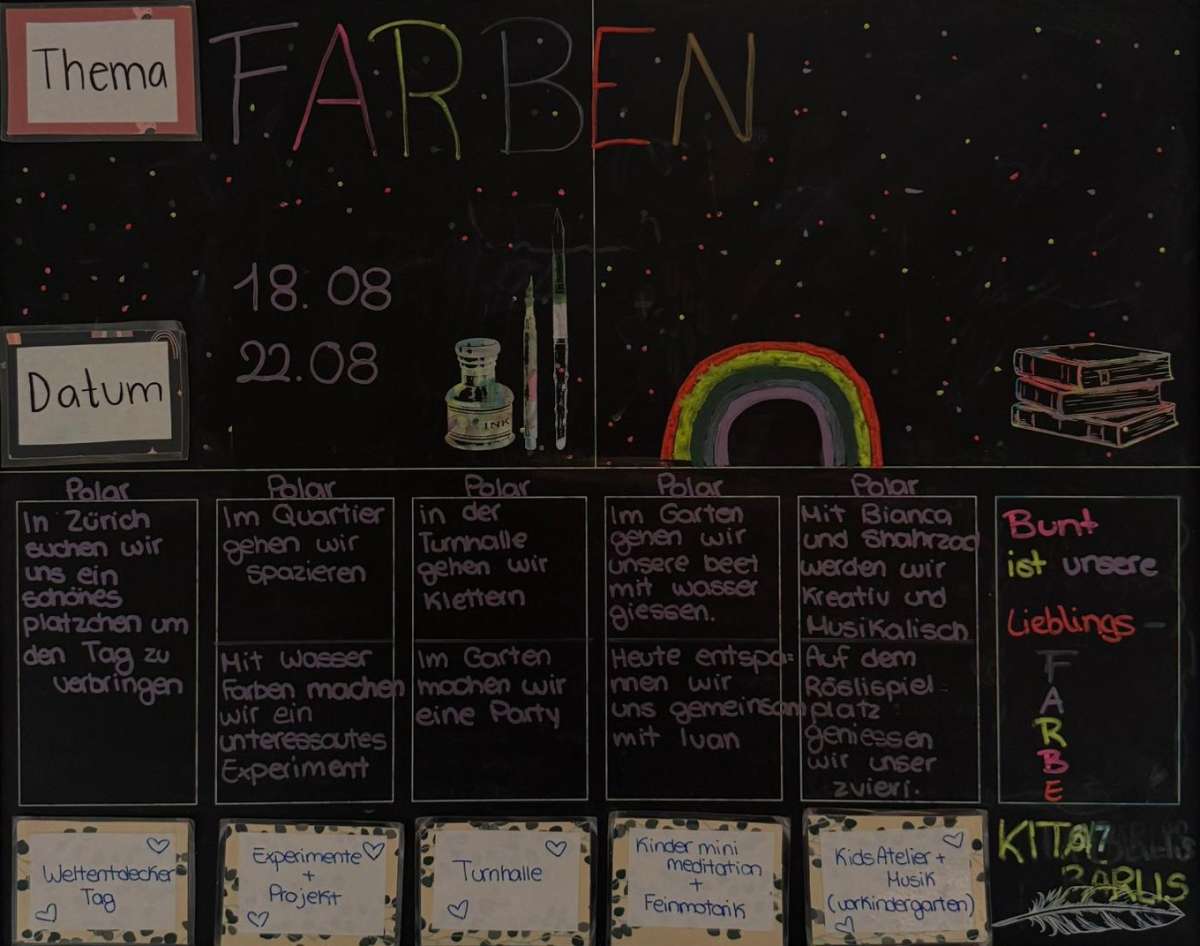 Thema
FARBEN
18.08
22.08
Datum
INK
Polar
In Zürich
suchen wir
uns ein
schönes
platzchen um
den Tag zu
verbringen
Weltentdecker
Tag
Polar
Im Quartier
gehen wir
spazieren
Mit Wasser
Farben machen
wir ein
unteressautes
Experiment
Experimente
+
Projekt
Polar
in der
Turnhalle
gehen wir
Klettern
Im Garten
machen wir
eine Party
Turnhalle
Polar
Im Garten
gehen wir
unsere beet
mit wasser
giessen.
Heute entspa=
nnen wir
uns gemeinsam
mit Iuan
Kinder mini
meditation
+
Feinmotorik
Polar
Mit Bianca
und Shahrzad
werden wir
Kreativ und
Musikalisch
Auf dem
Röslispiel
platz
geniessen
wir unser
zvieri.
Kids Atelier +
Musik
(vorkindergarten)
Bunt
ist unsere
Lieblings-
F
A
R
B
E
KITA